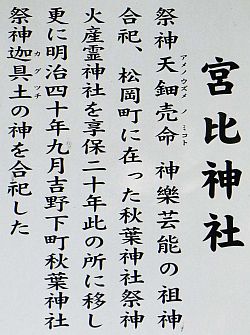 宮比神社
祭神 天鈿売命 神樂芸能の祖神
アメノウズメノミコト
合祀、松岡町に在った秋葉神社祭神
火産霊神社を享保二十年此の所に移し
更に明治四十年九月吉野下町秋葉神社
祭神迦具土の神を合祀した
カグツチ